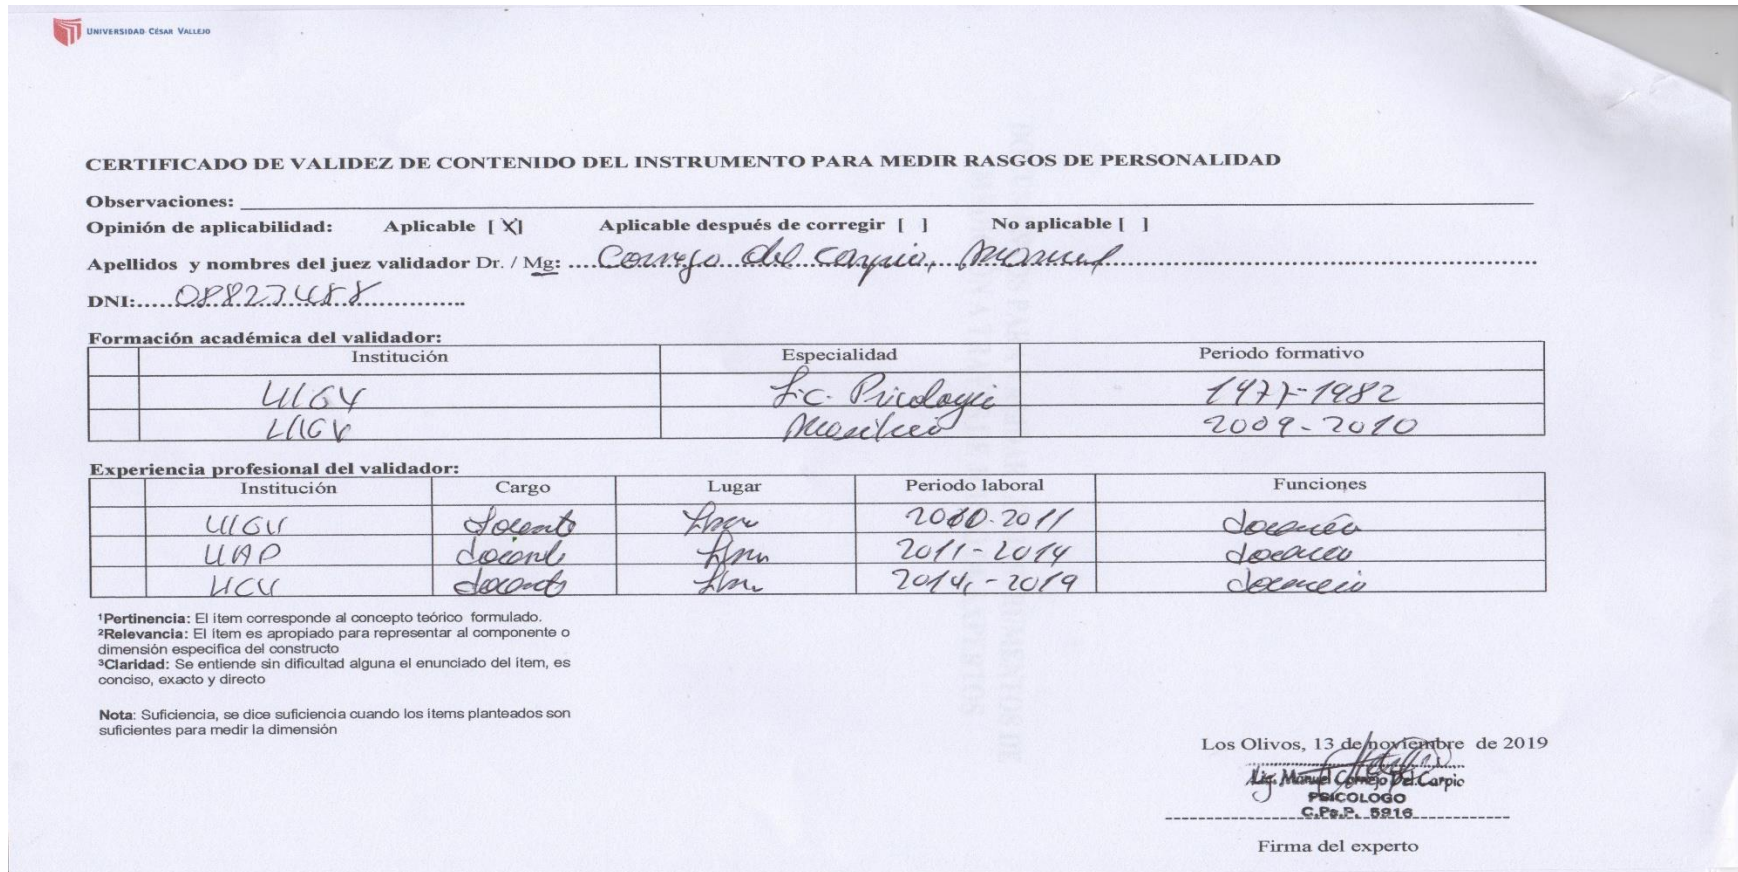 UNIVERSIDAD CÉSAR VALLEJO
CERTIFICADO DE VALIDEZ DE CONTENIDO DEL INSTRUMENTO PARA MEDIR RASGOS DE PERSONALIDAD
Observaciones:
Opinión de aplicabilidad: Aplicable [X] Aplicable después de corregir [ ] No aplicable [ ]
Apellidos y nombres del juez validador Dr. / Mg: Cornejo del Carpio, Manuel
DNI: 08823488
Formación académica del validador:
Institución Especialidad Periodo formativo
UIGV Lic. Psicología 1977-1982
UIGV 2009-2010
Experiencia profesional del validador:
Institución Cargo Lugar Periodo laboral Funciones
UIGV docente Lima 2010-2011 docencia
UAP docente Lima 2011-2014 docencia
UCV docente Lima 2014-2019 docencia
¹Pertinencia: El item corresponde al concepto teórico formulado.
²Relevancia: El item es apropiado para representar al componente o
dimensión especifica del constructo
³Claridad: Se entiende sin dificultad alguna el enunciado del item, es
conciso, exacto y directo
Nota: Suficiencia, se dice suficiencia cuando los items planteados son
suficientes para medir la dimensión
Los Olivos, 13 de noviembre de 2019
Manuel Cornejo Del Carpio
PSICOLOGO
C.Ps.P. 5916
Firma del experto